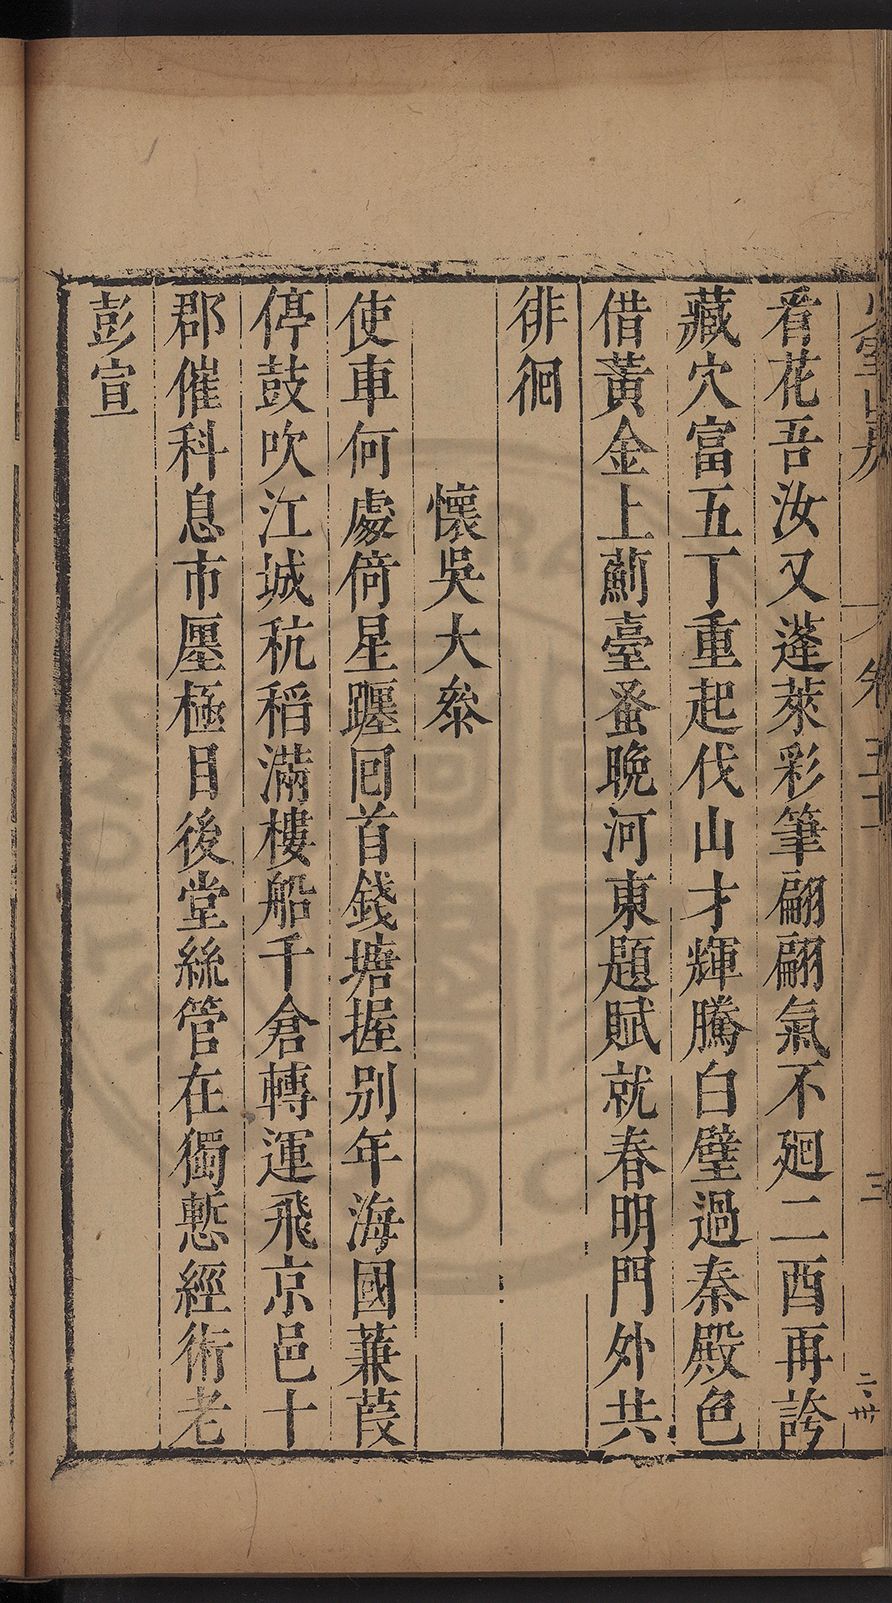 看花吾汝又蓬萊彩筆翩翩氣不廻二酉再誇
藏穴富五丁重起伐山才輝騰白璧過秦殿色
借黃金上薊臺蚤晚河東題賦就春明門外共
徘徊
懷吳大叅
使車何處倚星躔囘首錢塘握别年海國蒹葭
停鼓吹江城秔稻滿樓船千倉轉運飛京邑十
郡催科息市廛極目後堂絲管在獨慙經術老
彭宣